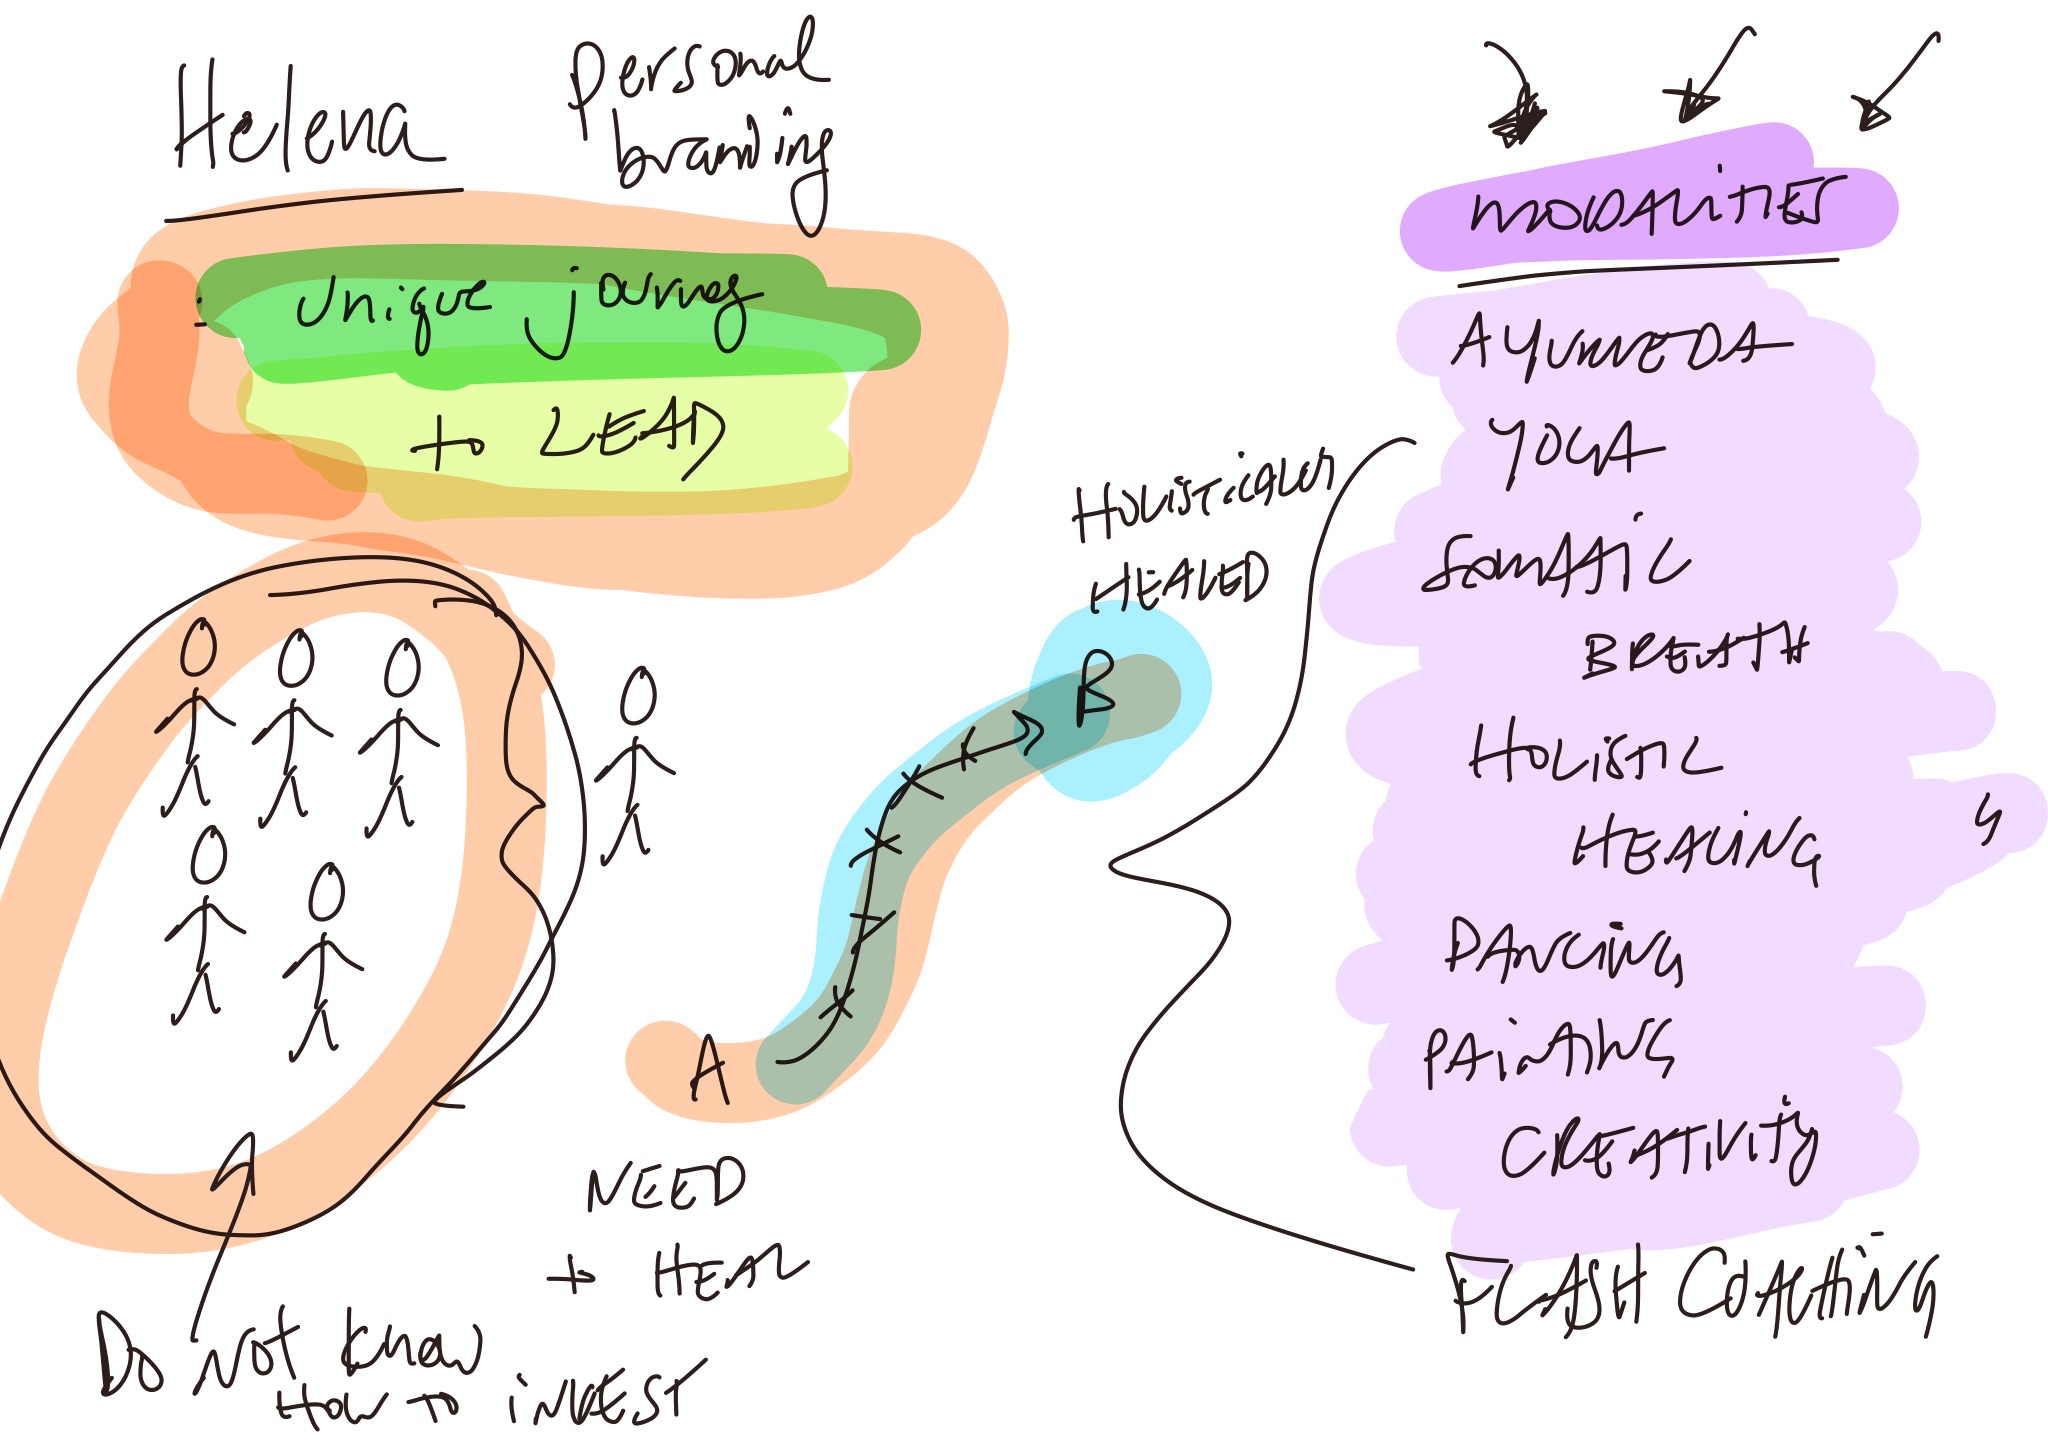 Helena
Personal
branding
Unique journey
to LEAD
Do not know
HOW TO iNVEST
A
NEED
to HEAL
B
HOLiSTiCALLY
HEALED
MODALiTiES
AYURVEDA
YOGA
SOMATiC
BREATH
HOLiSTiC
HEALiNG
DANCiNG
PAiNTiNG
CREATiViTY
FLASH COACHiNG